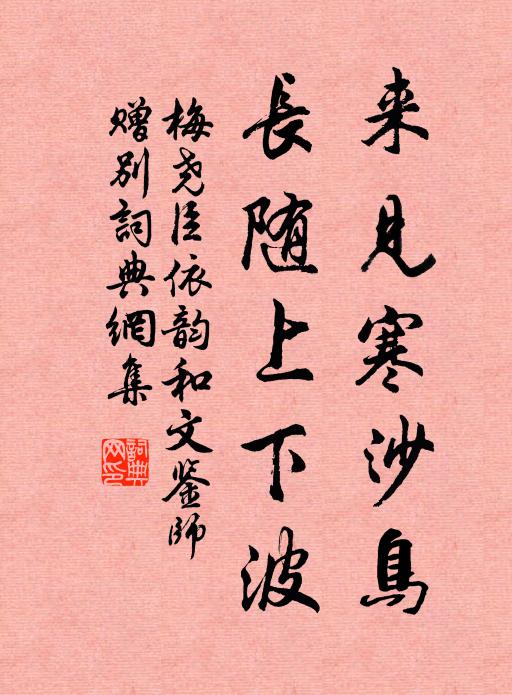 来見寒沙鳥
長随上下波
梅尧臣依韵和文鉴師
赠别詞典網集
詞典网印